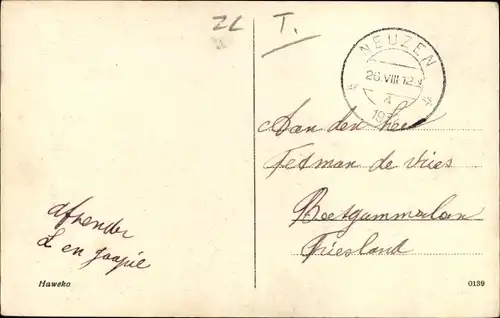 ZL T.
NEUZEN
26 VIII 12
Aan den Heer
Tetman de Vries
Beetgummolen
Friesland
afzender
L en Jaapie
Haweko
0139